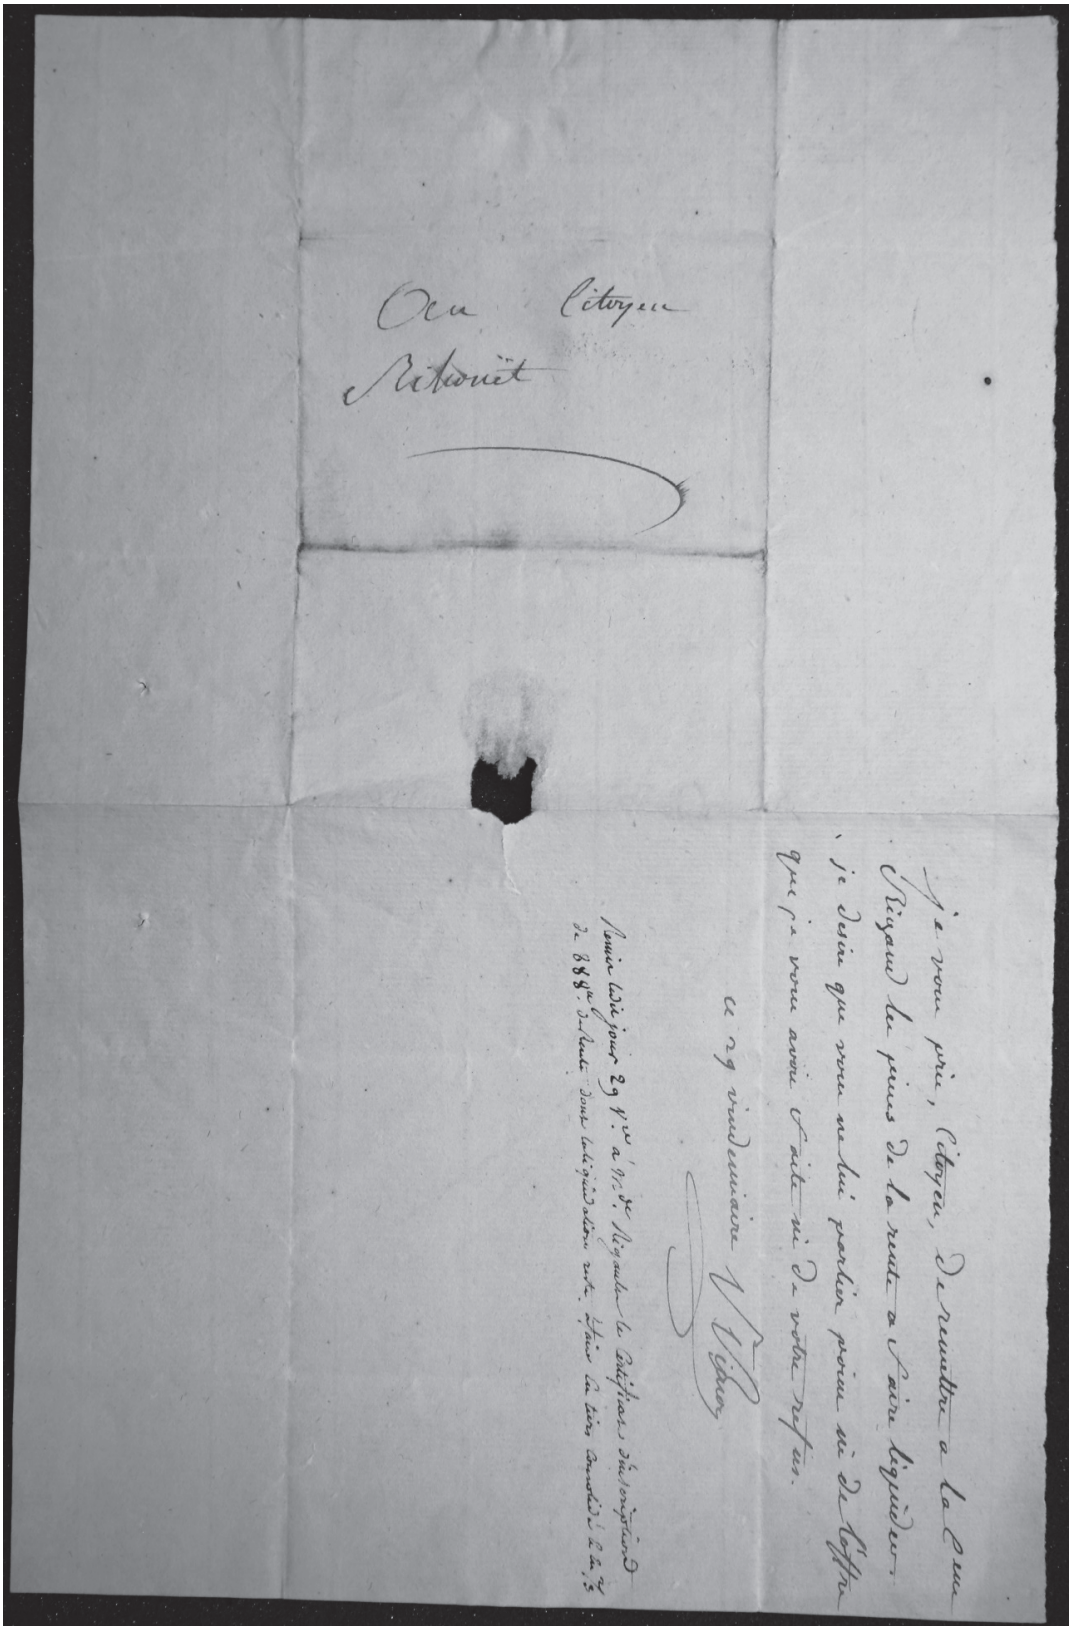 Au Citoyen
Rihouët
je vous prie, Citoyen, de remettre a la Cenne
Rigaud les pieces de la rente a faire liquider.
je desire que vous ne lui parliez point ni de l'offre
que je vous avois faite ni de votre refus.
ce 29 vindemiaire
Remis ledit jour 29 Vre à Mde Rigault le Certificat d'inscription
de 888# de Rente dont la liquidation reste à faire en tiers consolidé &